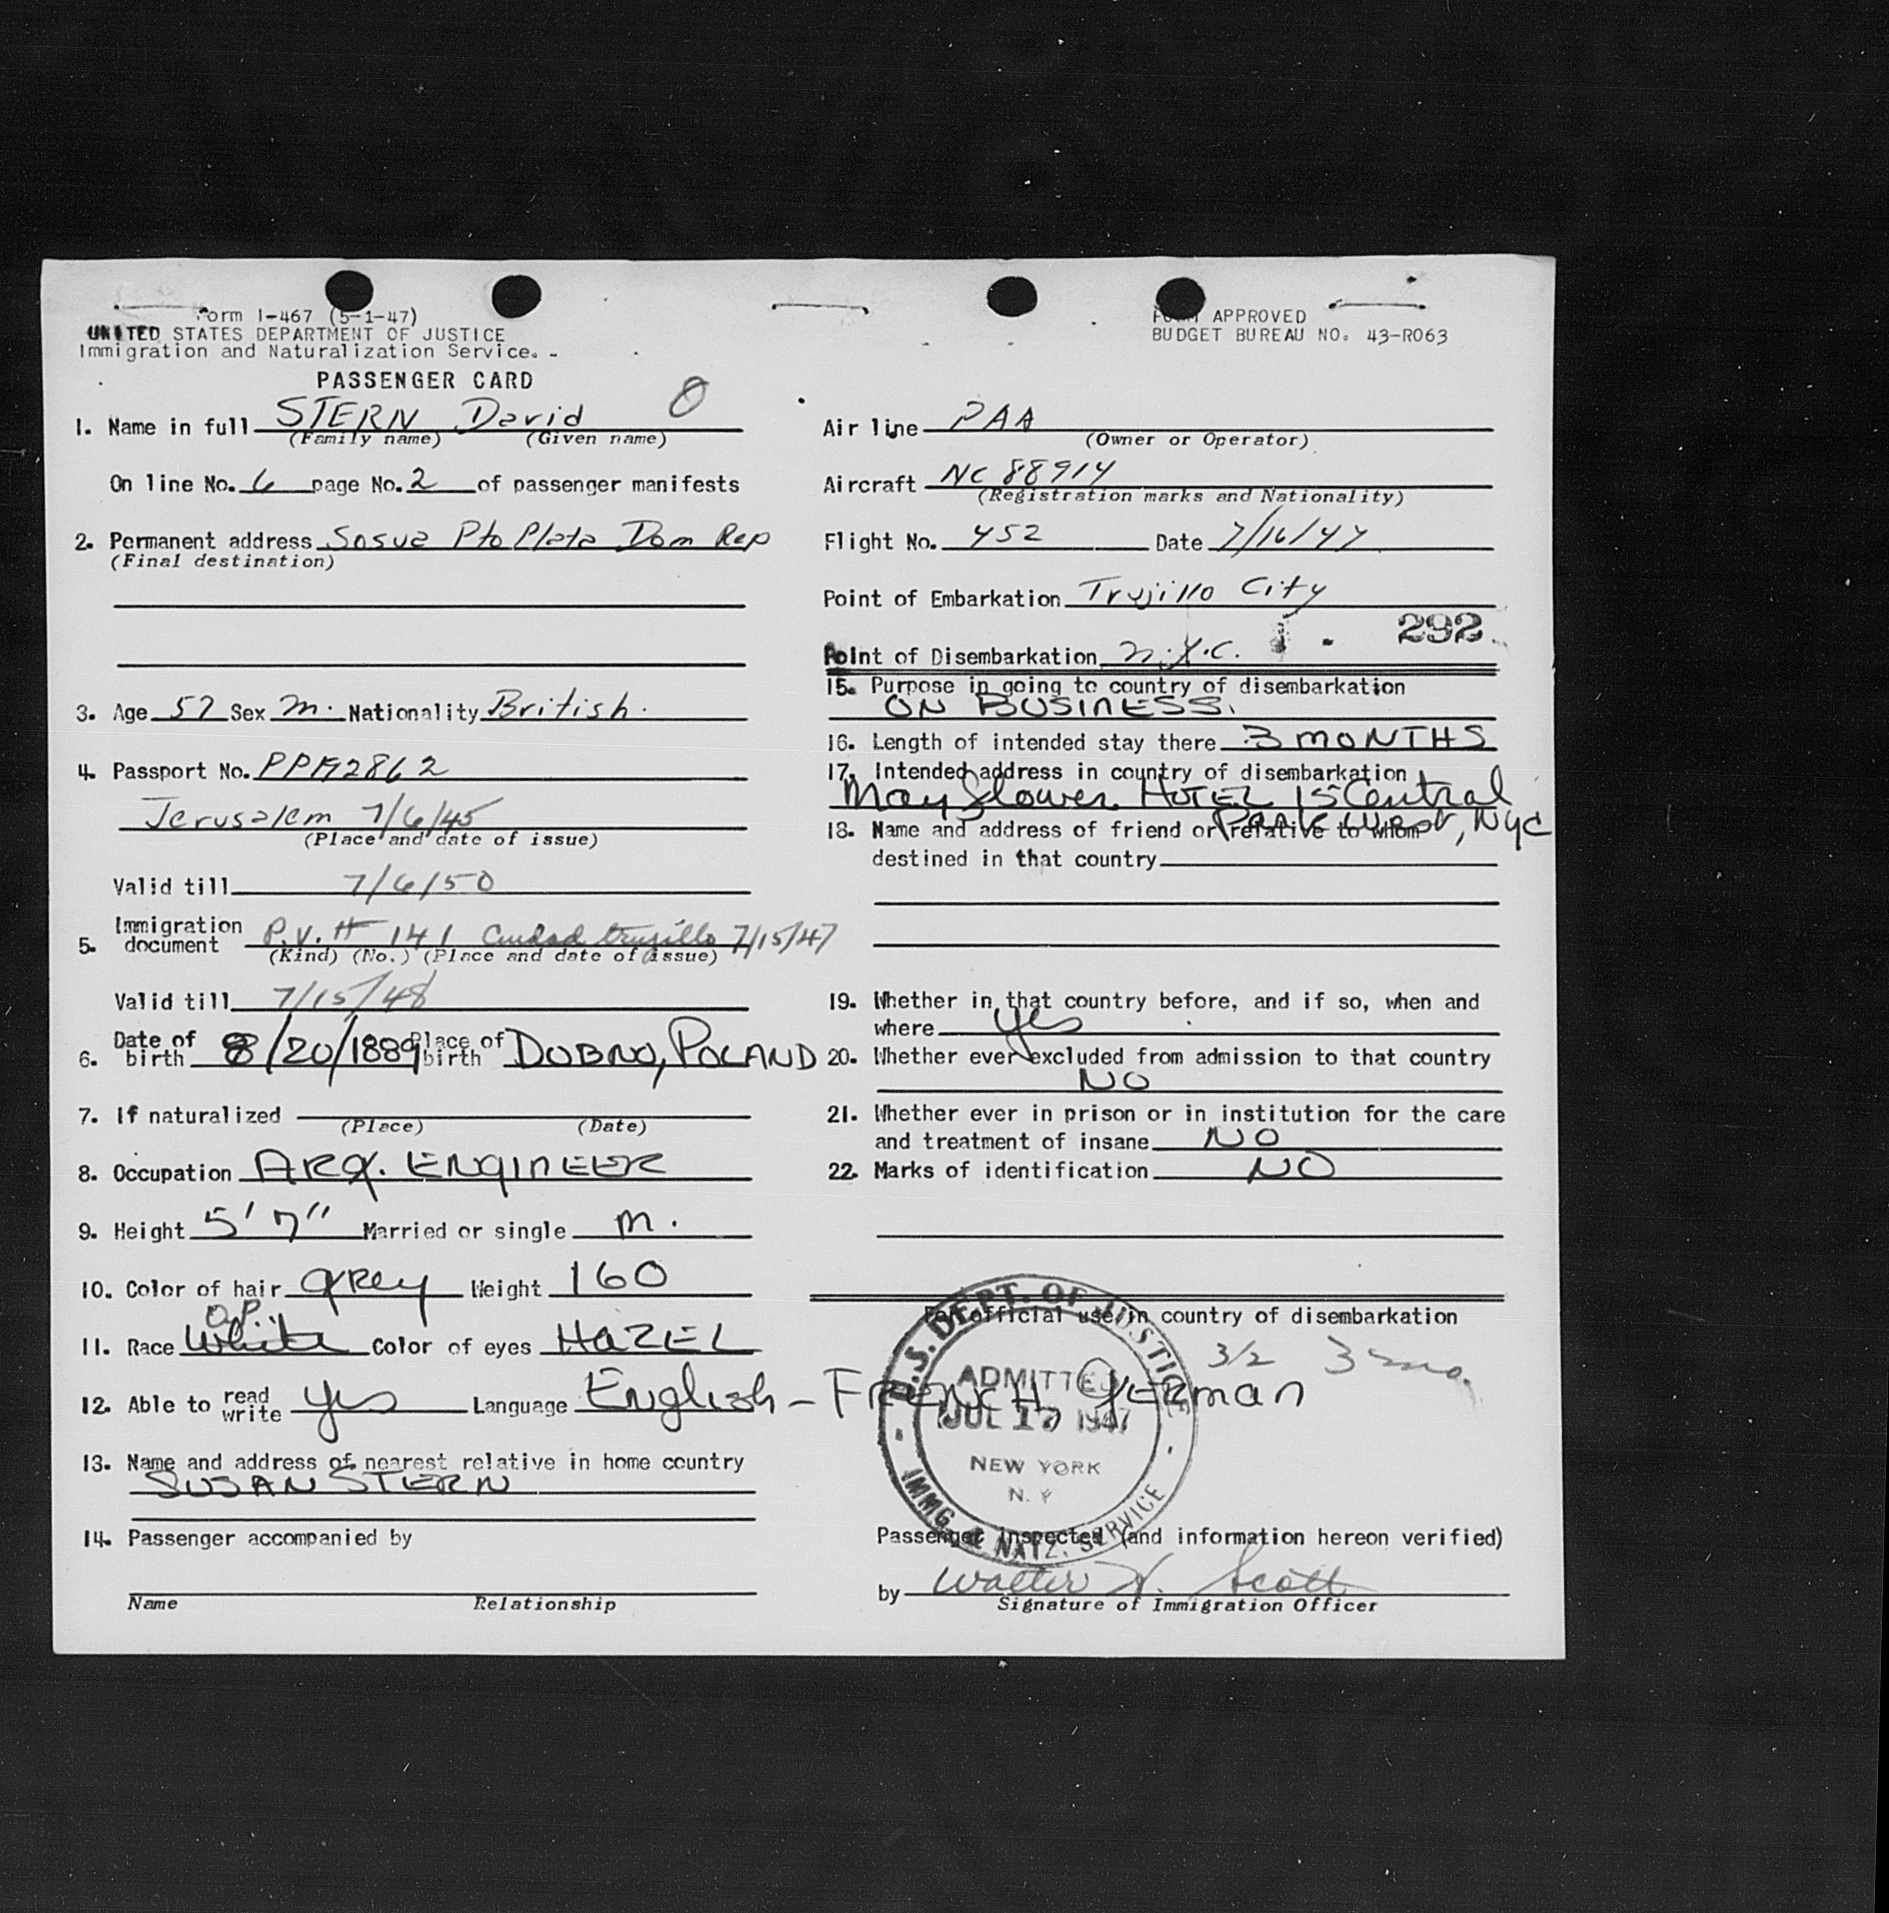 Form I-467 (5-1-47)
UNITED STATES DEPARTMENT OF JUSTICE
Immigration and Naturalization Service.
PASSENGER CARD
1. Name in full STERN David
(Family name) (Given name)
On line No. 6 page No. 2 of passenger manifests
2. Permanent address Sosua Pto Plata Dom Rep
(Final destination)
3. Age 57 Sex M. Nationality British.
4. Passport No.
Jerusalem 7/6/45
(Place and date of issue)
Valid till 7/6/50
5. Immigration document P.V. # 141 Ciudad trujillo 7/15/47
(Kind) (No.) (Place and date of issue)
Valid till 7/15/48
6. Date of birth 8/20/1889 Place of birth DUBNO, POLAND
7. If naturalized
(Place) (Date)
8. Occupation ARQ. ENGINEER
9. Height 5' 7" Married or single M.
10. Color of hair GREY Weight 160
11. Race White Color of eyes HAZEL
12. Able to read write yes Language English - FRENCH GERMAN
13. Name and address of nearest relative in home country
SUSAN STERN
14. Passenger accompanied by
Name Relationship
FORM APPROVED
BUDGET BUREAU NO. 43-R063
Air line PAA
(Owner or Operator)
Aircraft NC 88914
(Registration marks and Nationality)
Flight No. 452 Date 7/16/47
Point of Embarkation Trujillo City
292
Point of Disembarkation N.Y.C.
15. Purpose in going to country of disembarkation
ON BUSINESS.
16. Length of intended stay there 3 MONTHS
17. Intended address in country of disembarkation
Mayflower HOTEL 15 Central
Park West, NYC
18. Name and address of friend or relative to whom
destined in that country
19. Whether in that country before, and if so, when and
where yes
20. Whether ever excluded from admission to that country
NO
21. Whether ever in prison or in institution for the care
and treatment of insane NO
22. Marks of identification NO
For official use in country of disembarkation
3/2 3 mo.
U.S. DEPT. OF JUSTICE
ADMITTED
JUL 17 1947
NEW YORK
N. Y
IMMG. & NATZ. SERVICE
Passenger inspected (and information hereon verified)
by Walter H. Scott
Signature of Immigration Officer